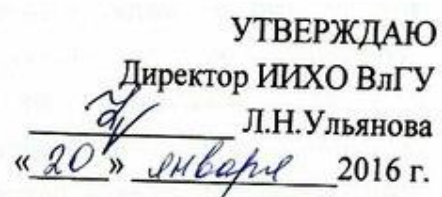 УТВЕРЖДАЮ
Директор ИИХО ВлГУ
Л.Н.Ульянова
«20» января 2016 г.